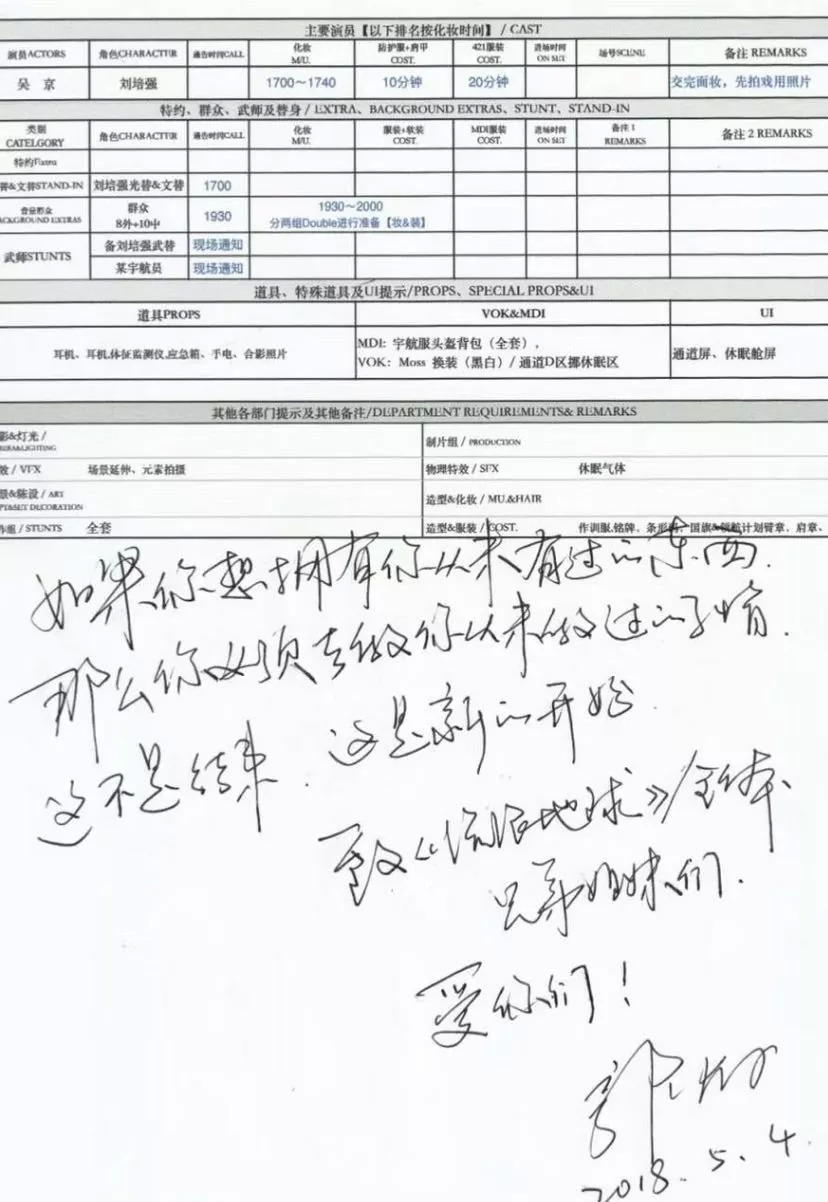 主要演员【以下排名按化妆时间】/ CAST
演员ACTORS 角色CHARACTER 通告时间CALL 化妆 M/U. 防护服+肩甲 COST. 421服装 COST. 进场时间 ON SET 场号SCENE 备注 REMARKS
吴 京 刘培强 1700～1740 10分钟 20分钟 交完面妆，先拍戏用照片
特约、群众、武师及替身 / EXTRA、BACKGROUND EXTRAS、STUNT、STAND-IN
类别 CATELGORY 角色CHARACTER 通告时间CALL 化妆 M/U. 服装+软装 COST. MDI服装 COST. 进场时间 ON SET 备注 1 REMARKS 备注 2 REMARKS
特约Extra
替&文替STAND-IN 刘培强光替&文替 1700
ACKGROUND EXTRAS 群众 8外+10中 1930 1930～2000 分两组Double进行准备【妆&装】
武师STUNTS 备刘培强武替 现场通知
某宇航员 现场通知
道具、特殊道具及UI提示/PROPS、SPECIAL PROPS&UI
道具PROPS VOK&MDI UI
耳机、耳机,体征监测仪,应急箱、手电、合影照片 MDI: 宇航服头盔背包（全套），
VOK: Moss 换装（黑白）/ 通道D区挪休眠区 通道屏、休眠舱屏
其他各部门提示及其他备注/DEPARTMENT REQUIREMENTS& REMARKS
影&灯光 / 制片组 / PRODUCTION
效 / VFX 场景延伸、元素拍摄 物理特效 / SFX 休眠气体
景&陈设 / ART
PT&SET DECORATION 造型&化妆 / MU.&HAIR
作组 / STUNTS 全套 造型&服装 / COST. 作训服,铭牌、条形码、国旗&领航计划臂章、肩章、
如果你想拥有你从未有过的东西.
那么你必须去做你从未做过的事情.
这不是结束. 这是新的开始.
致《流浪地球》全体
兄弟姐妹们.
爱你们！
郭帆
2018. 5. 4.